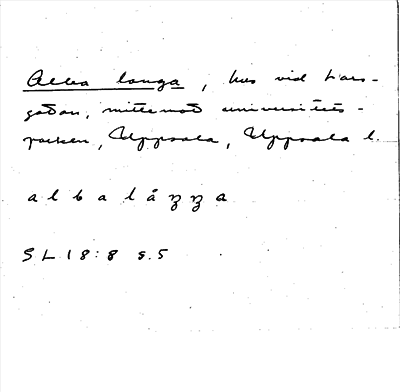 Alba longa, hus vid Lars-
gatan, mittemot universitets-
parken, Uppsala, Uppsala l.
a l b a l å ŋ ŋ a
S L 18:8 s. 5